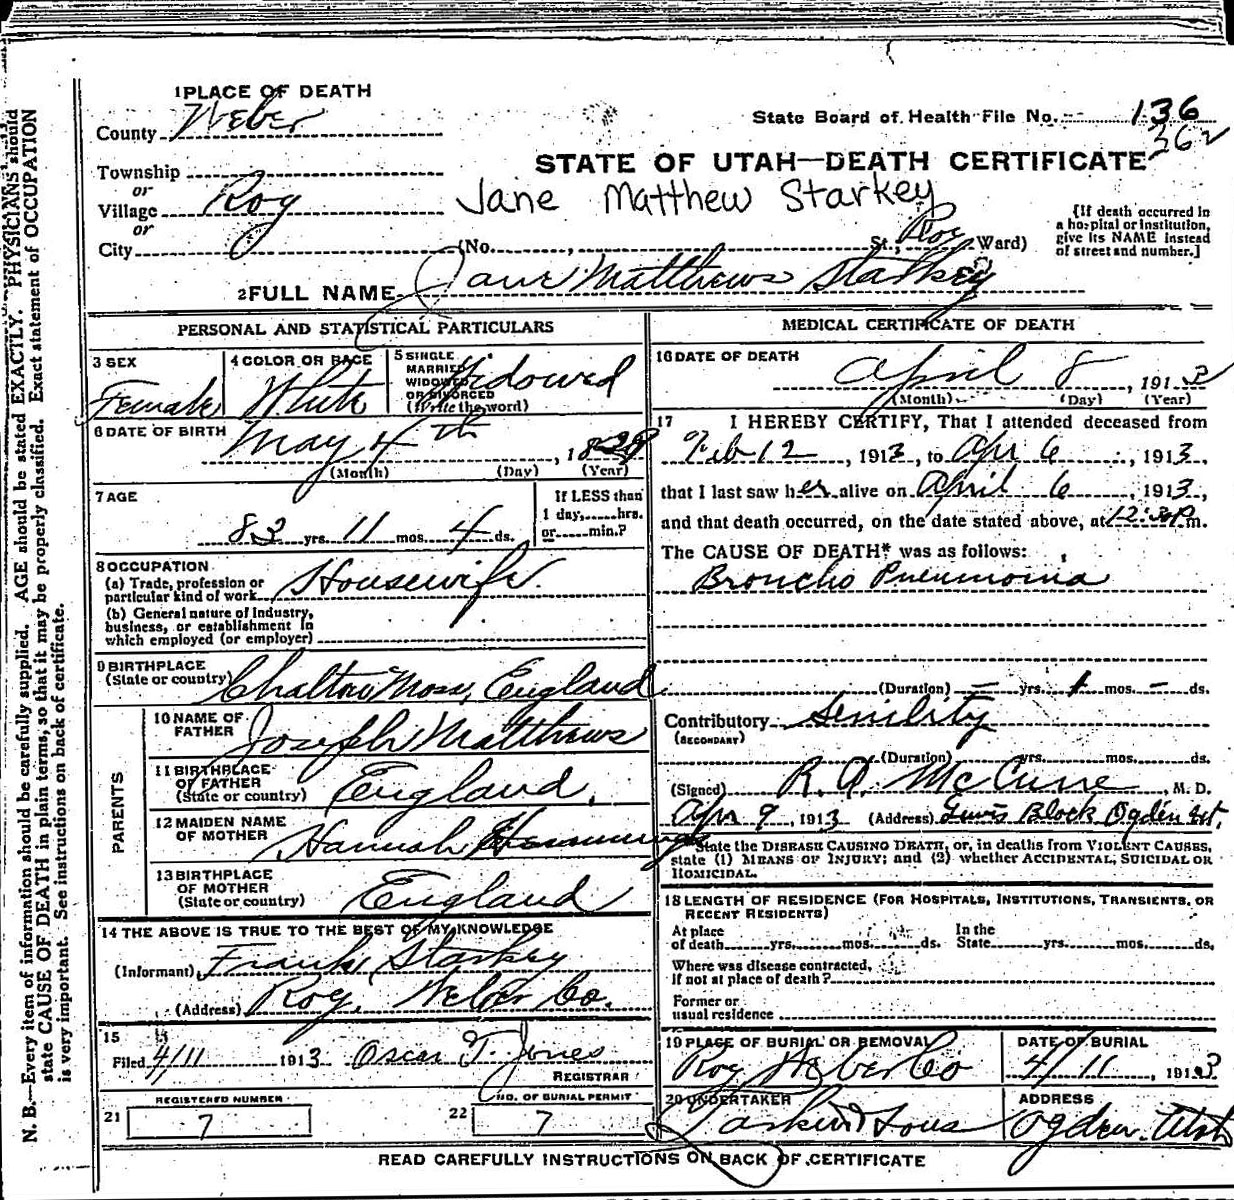 1 PLACE OF DEATH
County Weber
State Board of Health File No. 136
362
Township
or
Village Roy
or
City
STATE OF UTAH—DEATH CERTIFICATE
Jane Matthew Starkey
(No. , St.; Roy Ward)
[If death occurred in a hospital or institution, give its NAME instead of street and number.]
2 FULL NAME Jane Matthews Starkey
PERSONAL AND STATISTICAL PARTICULARS
3 SEX
Female
4 COLOR OR RACE
White
5 SINGLE
MARRIED
WIDOWED
OR DIVORCED
(Write the word)
Widowed
6 DATE OF BIRTH
May 4th , 18
(Month) (Day) (Year)
7 AGE
83 yrs. 11 mos. 4 ds.
If LESS than
1 day, hrs.
or min.?
8 OCCUPATION
(a) Trade, profession or
particular kind of work Housewife
(b) General nature of industry,
business, or establishment in
which employed (or employer)
9 BIRTHPLACE
(State or country) Moss, England
PARENTS
10 NAME OF
FATHER Joseph Matthews
11 BIRTHPLACE
OF FATHER
(State or country) England.
12 MAIDEN NAME
OF MOTHER Hannah Hemmings
13 BIRTHPLACE
OF MOTHER
(State or country) England
14 THE ABOVE IS TRUE TO THE BEST OF MY KNOWLEDGE
(Informant) Frank Starkey
(Address) Roy, Weber Co.
15
Filed 4/11 1913 Oscar T. Jones
REGISTRAR
REGISTERED NUMBER
21 7
NO. OF BURIAL PERMIT
22 7
MEDICAL CERTIFICATE OF DEATH
16 DATE OF DEATH
April 8 , 1913
(Month) (Day) (Year)
17 I HEREBY CERTIFY, That I attended deceased from
Feb 12 , 1913, to Apr 6 , 1913,
that I last saw her alive on April 6 , 1913,
and that death occurred, on the date stated above, at 12:30 P m.
The CAUSE OF DEATH* was as follows:
Broncho Pneumonia
(Duration) – yrs. 1 mos. – ds.
Contributory Senility
(SECONDARY)
(Duration) yrs. mos. ds.
(Signed) R. A. McCune, M. D.
Apr 9 , 1913 (Address) Lewis Block Ogden Ut.
*State the DISEASE CAUSING DEATH, or, in deaths from VIOLENT CAUSES,
state (1) MEANS OF INJURY; and (2) whether ACCIDENTAL, SUICIDAL OR
HOMICIDAL.
18 LENGTH OF RESIDENCE (FOR HOSPITALS, INSTITUTIONS, TRANSIENTS, OR
RECENT RESIDENTS)
At place
of death yrs. mos. ds.
In the
State yrs. mos. ds.
Where was disease contracted,
if not at place of death?
Former or
usual residence
19 PLACE OF BURIAL OR REMOVAL
Roy Weber Co
DATE OF BURIAL
4/11 , 1913
20 UNDERTAKER
Larkin & Sons
ADDRESS
Ogden. Utah
READ CAREFULLY INSTRUCTIONS ON BACK OF CERTIFICATE
N. B.—Every item of information should be carefully supplied. AGE should be stated EXACTLY. PHYSICIANS should
state CAUSE OF DEATH in plain terms, so that it may be properly classified. Exact statement of OCCUPATION
is very important. See instructions on back of certificate.